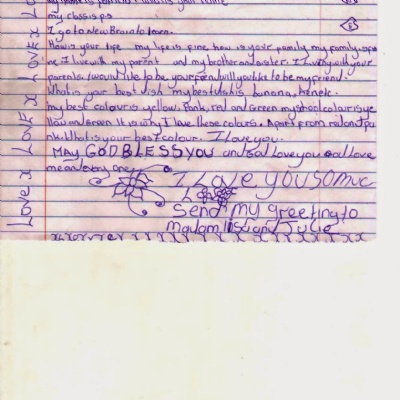 my class is p.5
I go to New Brain to learn.
How is your life my life is fine, how is your family my family is
ne I live with my parent and my brother and sister. I living with your
parents. I would like to be your friend will you like to be my friend.
What is your best dish my best dish is banana,
my best colour is yellow, Pank, red and Green my school colour is ye
llow and Green It is why I love these colours. Apart from red and pa
nk. What is your best colour. I love you.
MAY GOD BLESS YOU and God love you God love
me and every one
I love you so muc
Send my greeting to
Madam Julie
Love x LOVE x LOVE x